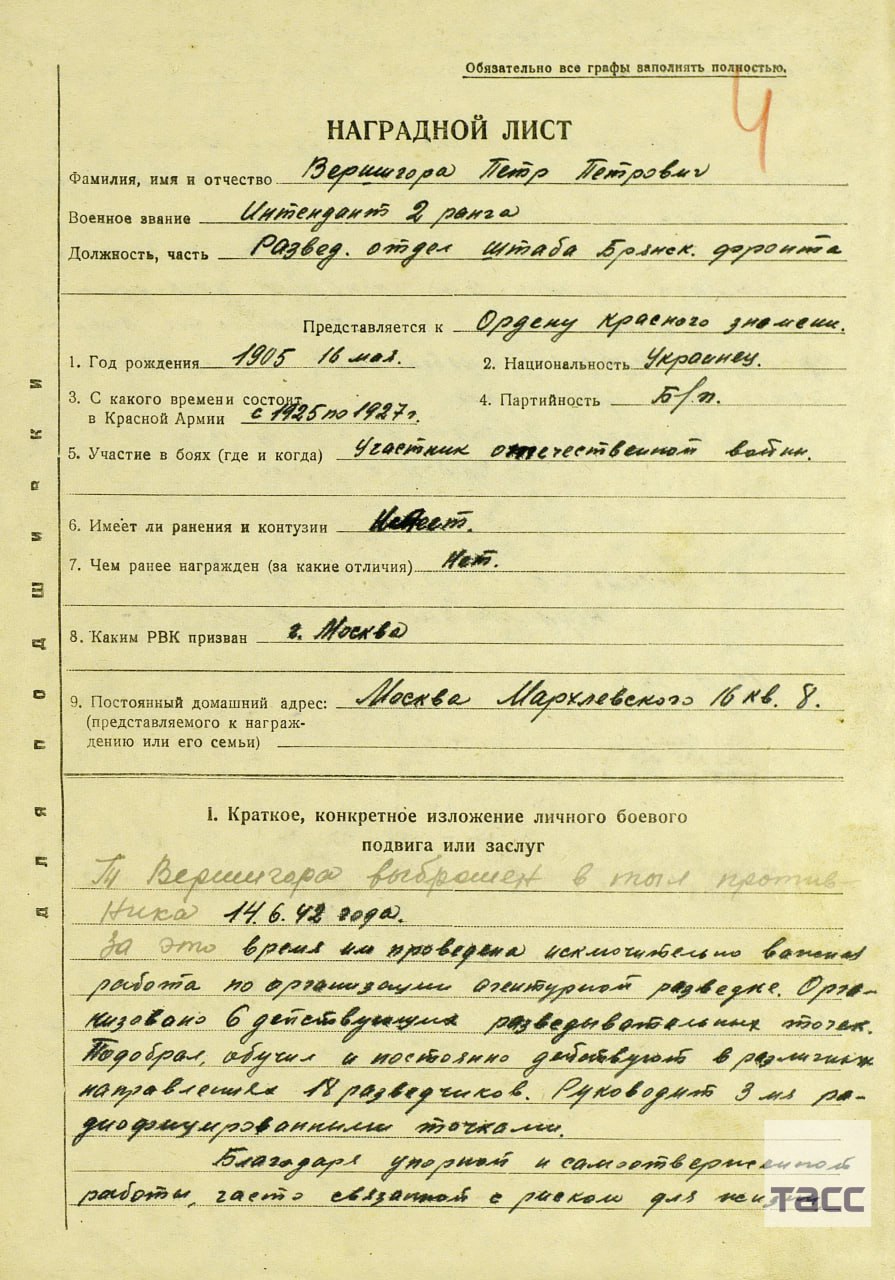 Обязательно все графы заполнять полностью.
4
НАГРАДНОЙ ЛИСТ
Фамилия, имя и отчество Вершигора Петр Петрович
Военное звание Интендант 2 ранга
Должность, часть Развед. отдел штаба Брянск. фронта
Представляется к Ордену Красного знамени.
1. Год рождения 1905 16 мая. 2. Национальность Украинец.
3. С какого времени состоит
в Красной Армии с 1925 по 1927 г. 4. Партийность Б/п.
5. Участие в боях (где и когда) Участник отечественной войны.
6. Имеет ли ранения и контузии
7. Чем ранее награжден (за какие отличия) Нет.
8. Каким РВК призван г. Москва
9. Постоянный домашний адрес: Москва Мархлевского 16 кв. 8.
(представляемого к награж-
дению или его семьи)
Для подшивки
I. Краткое, конкретное изложение личного боевого
подвига или заслуг
Вершигора выброшен в тыл против-
ника 14.6.42 года.
За это время им проведена исключительно важная
работа по организации агентурной разведке. Орга-
низовано 6 действующих разведывательных точек.
Подобрал, обучил и постоянно действуют в различных
направлениях 18 разведчиков. Руководит 3 мя ра-
диофицированными точками.
Благодаря упорной и самоотверженной
работы, часто связанной с риском для жизни
ТАСС